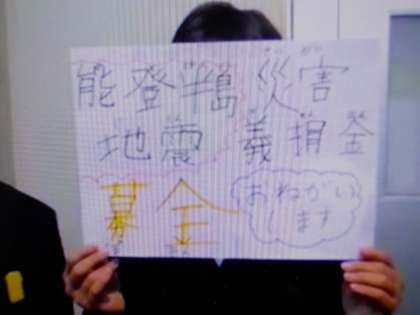 能登半島災害
地震義捐金
募金
おねがい
します